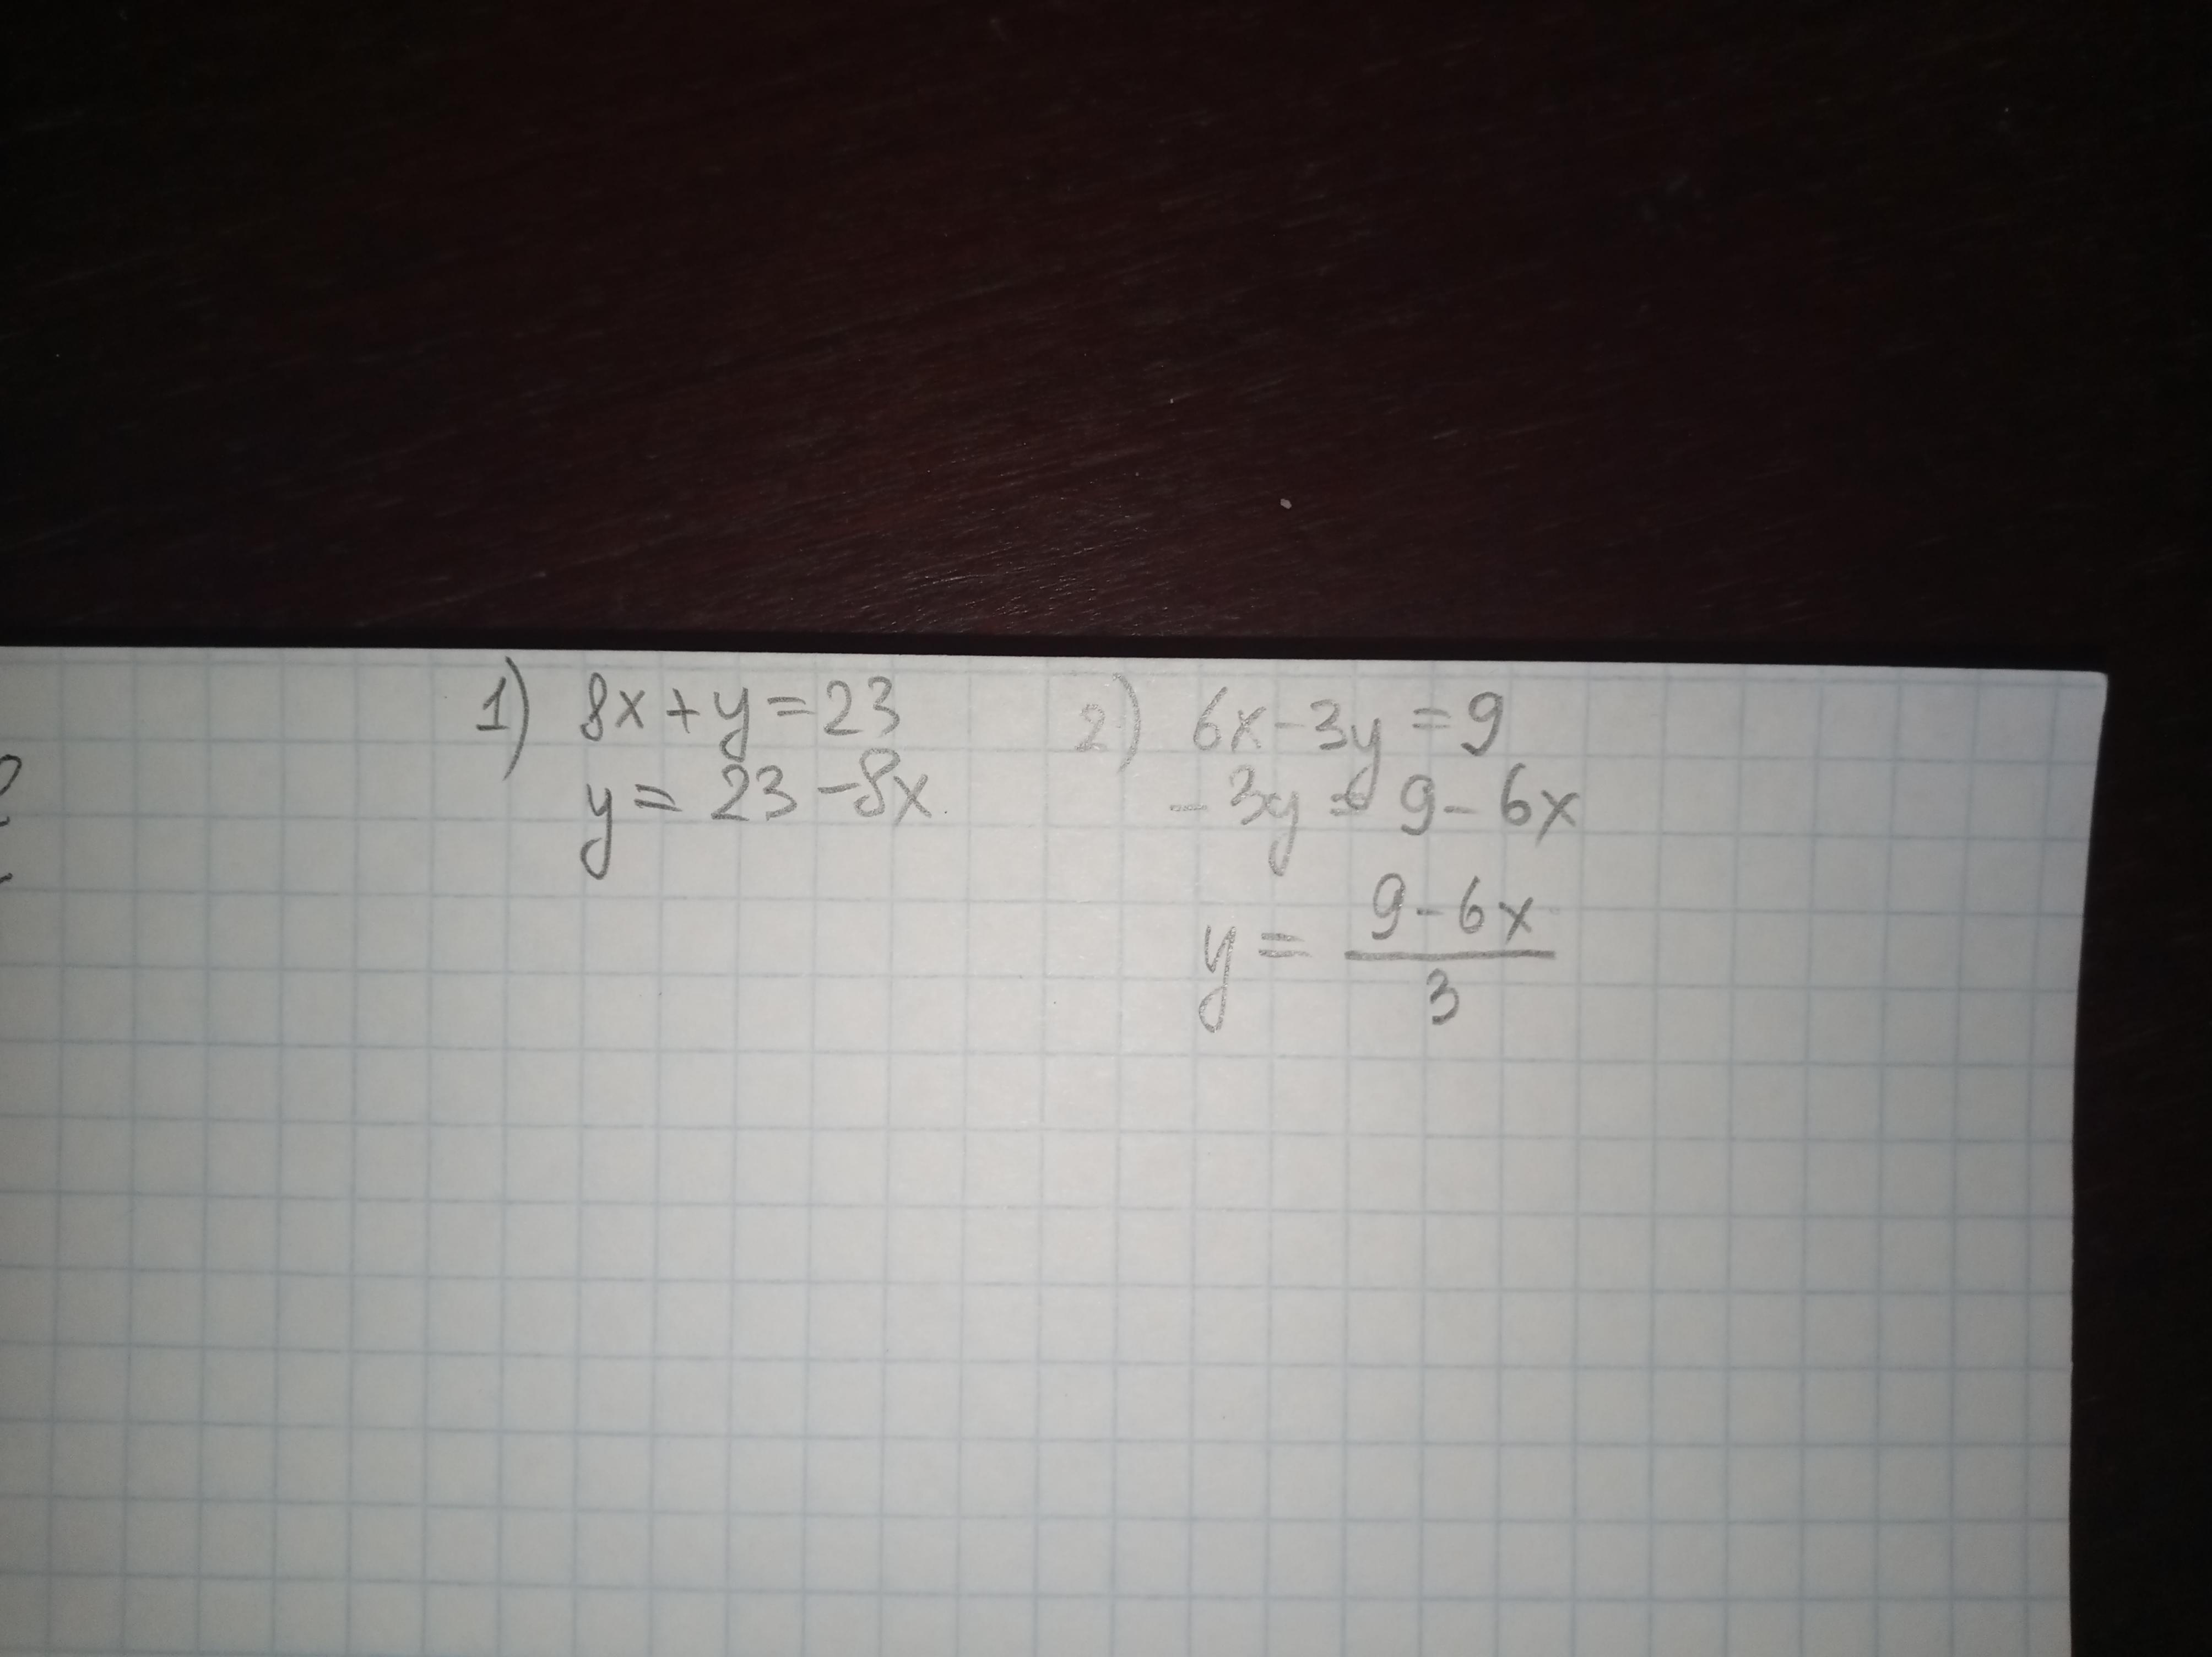 1) 8x+y=23
y= 23-8x
2) 6x-3y=9
-3y= 9-6x
y= 9-6x / 3